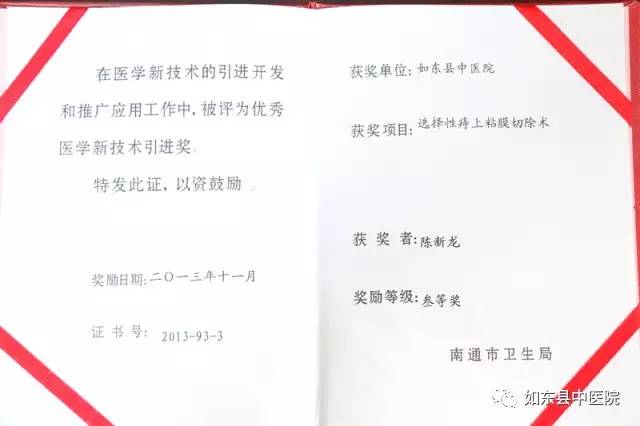 在医学新技术的引进开发
和推广应用工作中,被评为优秀
医学新技术引进奖。
特发此证,以资鼓励。
奖励日期:二〇一三年十一月
证书号:2013-93-3
获奖单位:如东县中医院
获奖项目:选择性痔上粘膜切除术
获奖者:陈新龙
奖励等级:叁等奖
南通市卫生局
如东县中医院